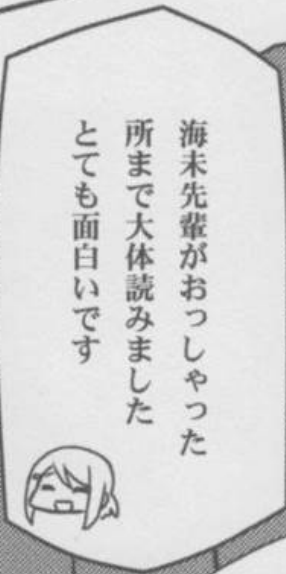 海未先輩がおっしゃった
所まで大体読みました
とても面白いです